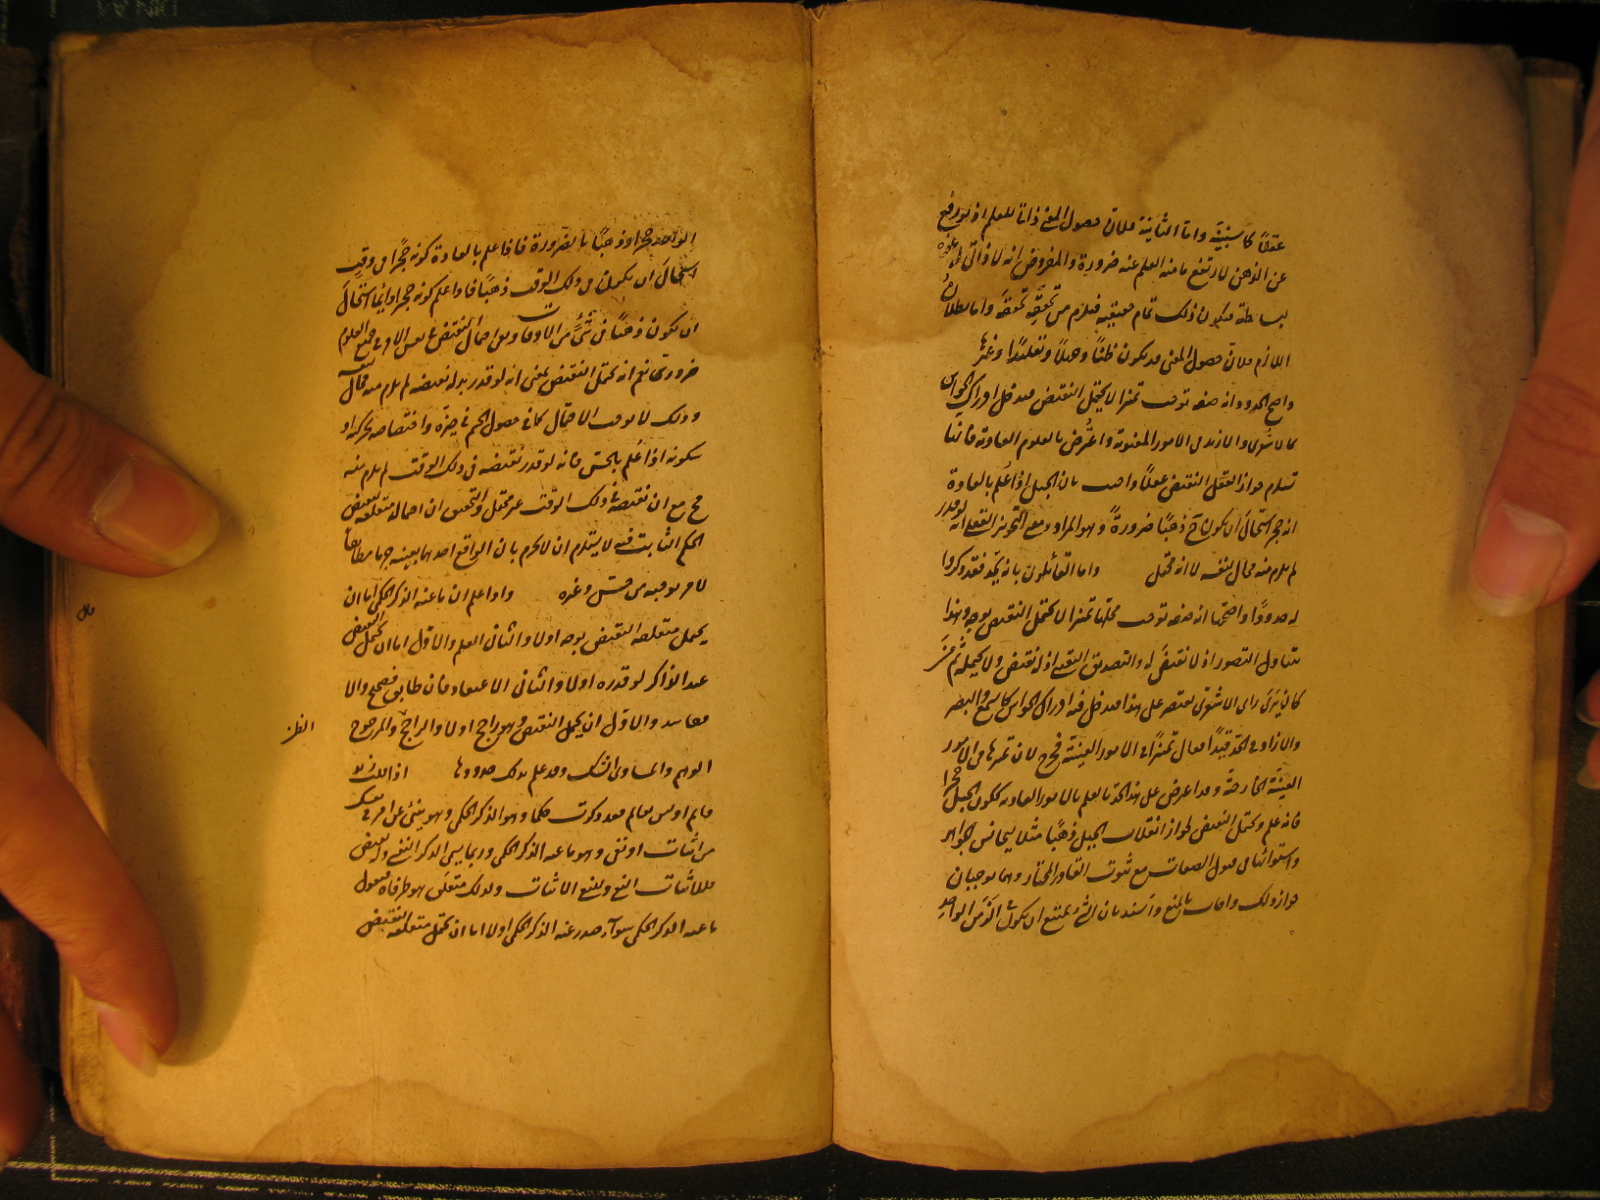 عقلًا كما سنبينه واما الثانية فلان حصول المعنى ذاتي للعلم اذ لو رفع
عن الذهن لارتفع ماهية العلم عنه ضرورة والمفروض انه لا ذاتي له غيره
لبساطته فيكون ذلك تمام حقيقته فيلزم من تحققه تحققه واما بطلان
اللازم فلان حصول المعنى قد يكون ظنًا وجهلًا وتقليدًا وغيرها
واصح الحدود انه صفة توجب تمييزا لا يحتمل النقيض فيدخل ادراك الحواس
كالاشعري والا زيد في الامور المعنوية واعتُرض بالعلوم العادية فانها
تستلزم جواز العقل النقيض عقلًا واجيب بان الجبل اذا عُلم بالعادة
انه حجر استحال ان يكون ح ذهبًا ضرورةً وهو المراد ومعنى التجويز العقلي انه لو قدر
لم يلزم منه محال لنفسه لا انه محتمل واما القائلون بانه يحد فقد ذكروا
له حدودًا واصحها انه صفة توجب لمحلها تمييزا لا يحتمل النقيض بوجه وهذا
يتناول التصور اذ لا نقيض له والتصديق اليقيني اذ له نقيض ولا يحتمله ثم من
كان يرى راى الاشعري يقتصر على هذا فيدخل فيه ادراك الحواس كالسمع والبصر
والا زاد في الحد قيدًا فقال تمييزًا في الامور المعنوية فخرج لان تمييزها في الامور
العينية الخارجة وقد اعترض على هذا الحد بالعلم بالامور العادية ككون الجبل حجرا
فانه علم ويحتمل النقيض لجواز انقلاب الجبل ذهبًا مثلا لتجانس الجواهر
واستوائها في قبول الصفات مع ثبوت القادر المختار وهما يوجبان
جواز ذلك واجاب بالمنع واسنده بان الشيء يمتنع ان يكون في الزمن الواحد
الواحد حجرا وذهبًا بالضرورة فاذا علم بالعادة كونه حجرًا في وقت
استحال ان يكون في ذلك الوقت ذهبًا فاذا علم كونه حجرا دائما استحال
ان يكون ذهبًا في شيء من الاوقات ونفى احتمال النقيض في نفس الامر في جميع العلوم
ضروري نعم انه يحتمل النقيض بمعنى انه لو قدر بدله نقيضه لم يلزم منه محال لنفسه
وذلك لا يوجب الاحتمال كما في حصول الجسم في حيزه واختصاصه بحركته او
سكونه اذا عُلم بالحس فانه لو قدر نقيضه في ذلك الوقت لم يلزم منه
مح مع ان نقيضه في ذلك الوقت غير محتمل والتحقيق ان احتماله متعلقه لنقيض
الحكم الثابت فيه لا يستلزم ان لا يجزم بان الواقع احدهما بعينه جزما مطابقا
لامر يوجبه من حس وغيره واذا علم ان ما عنه الذكر الحكمي اما ان
يحتمل متعلقه النقيض بوجه اولا والثاني العلم والاول اما ان يحتمل النقيض
عند الذاكر لو قدره اولا والثاني الاعتقاد فان طابق فصحيح والا
ففاسد والاول ان يحتمل النقيض وهو راجح اولا والراجح والمرجوح
الظن
الوهم والمساوي الشك وقد علم بذلك حدودها اذا قلت زيد
قايم او ليس بقايم فقد ذكرت حكما وهو الذكر الحكمي وهو ينبئ عن امر في نفسك
من اثبات او نفي وهو ما عنه الذكر الحكمي وربما يسمى الذكر النفسي وله نقيض
فللاثبات النفي وللنفي الاثبات ولذلك متعلق هو طرفاه فنقول
ما عنه الذكر الحكمي سوآء صدر عنه الذكر الحكمي اولا اما ان يحتمل متعلقه النقيض